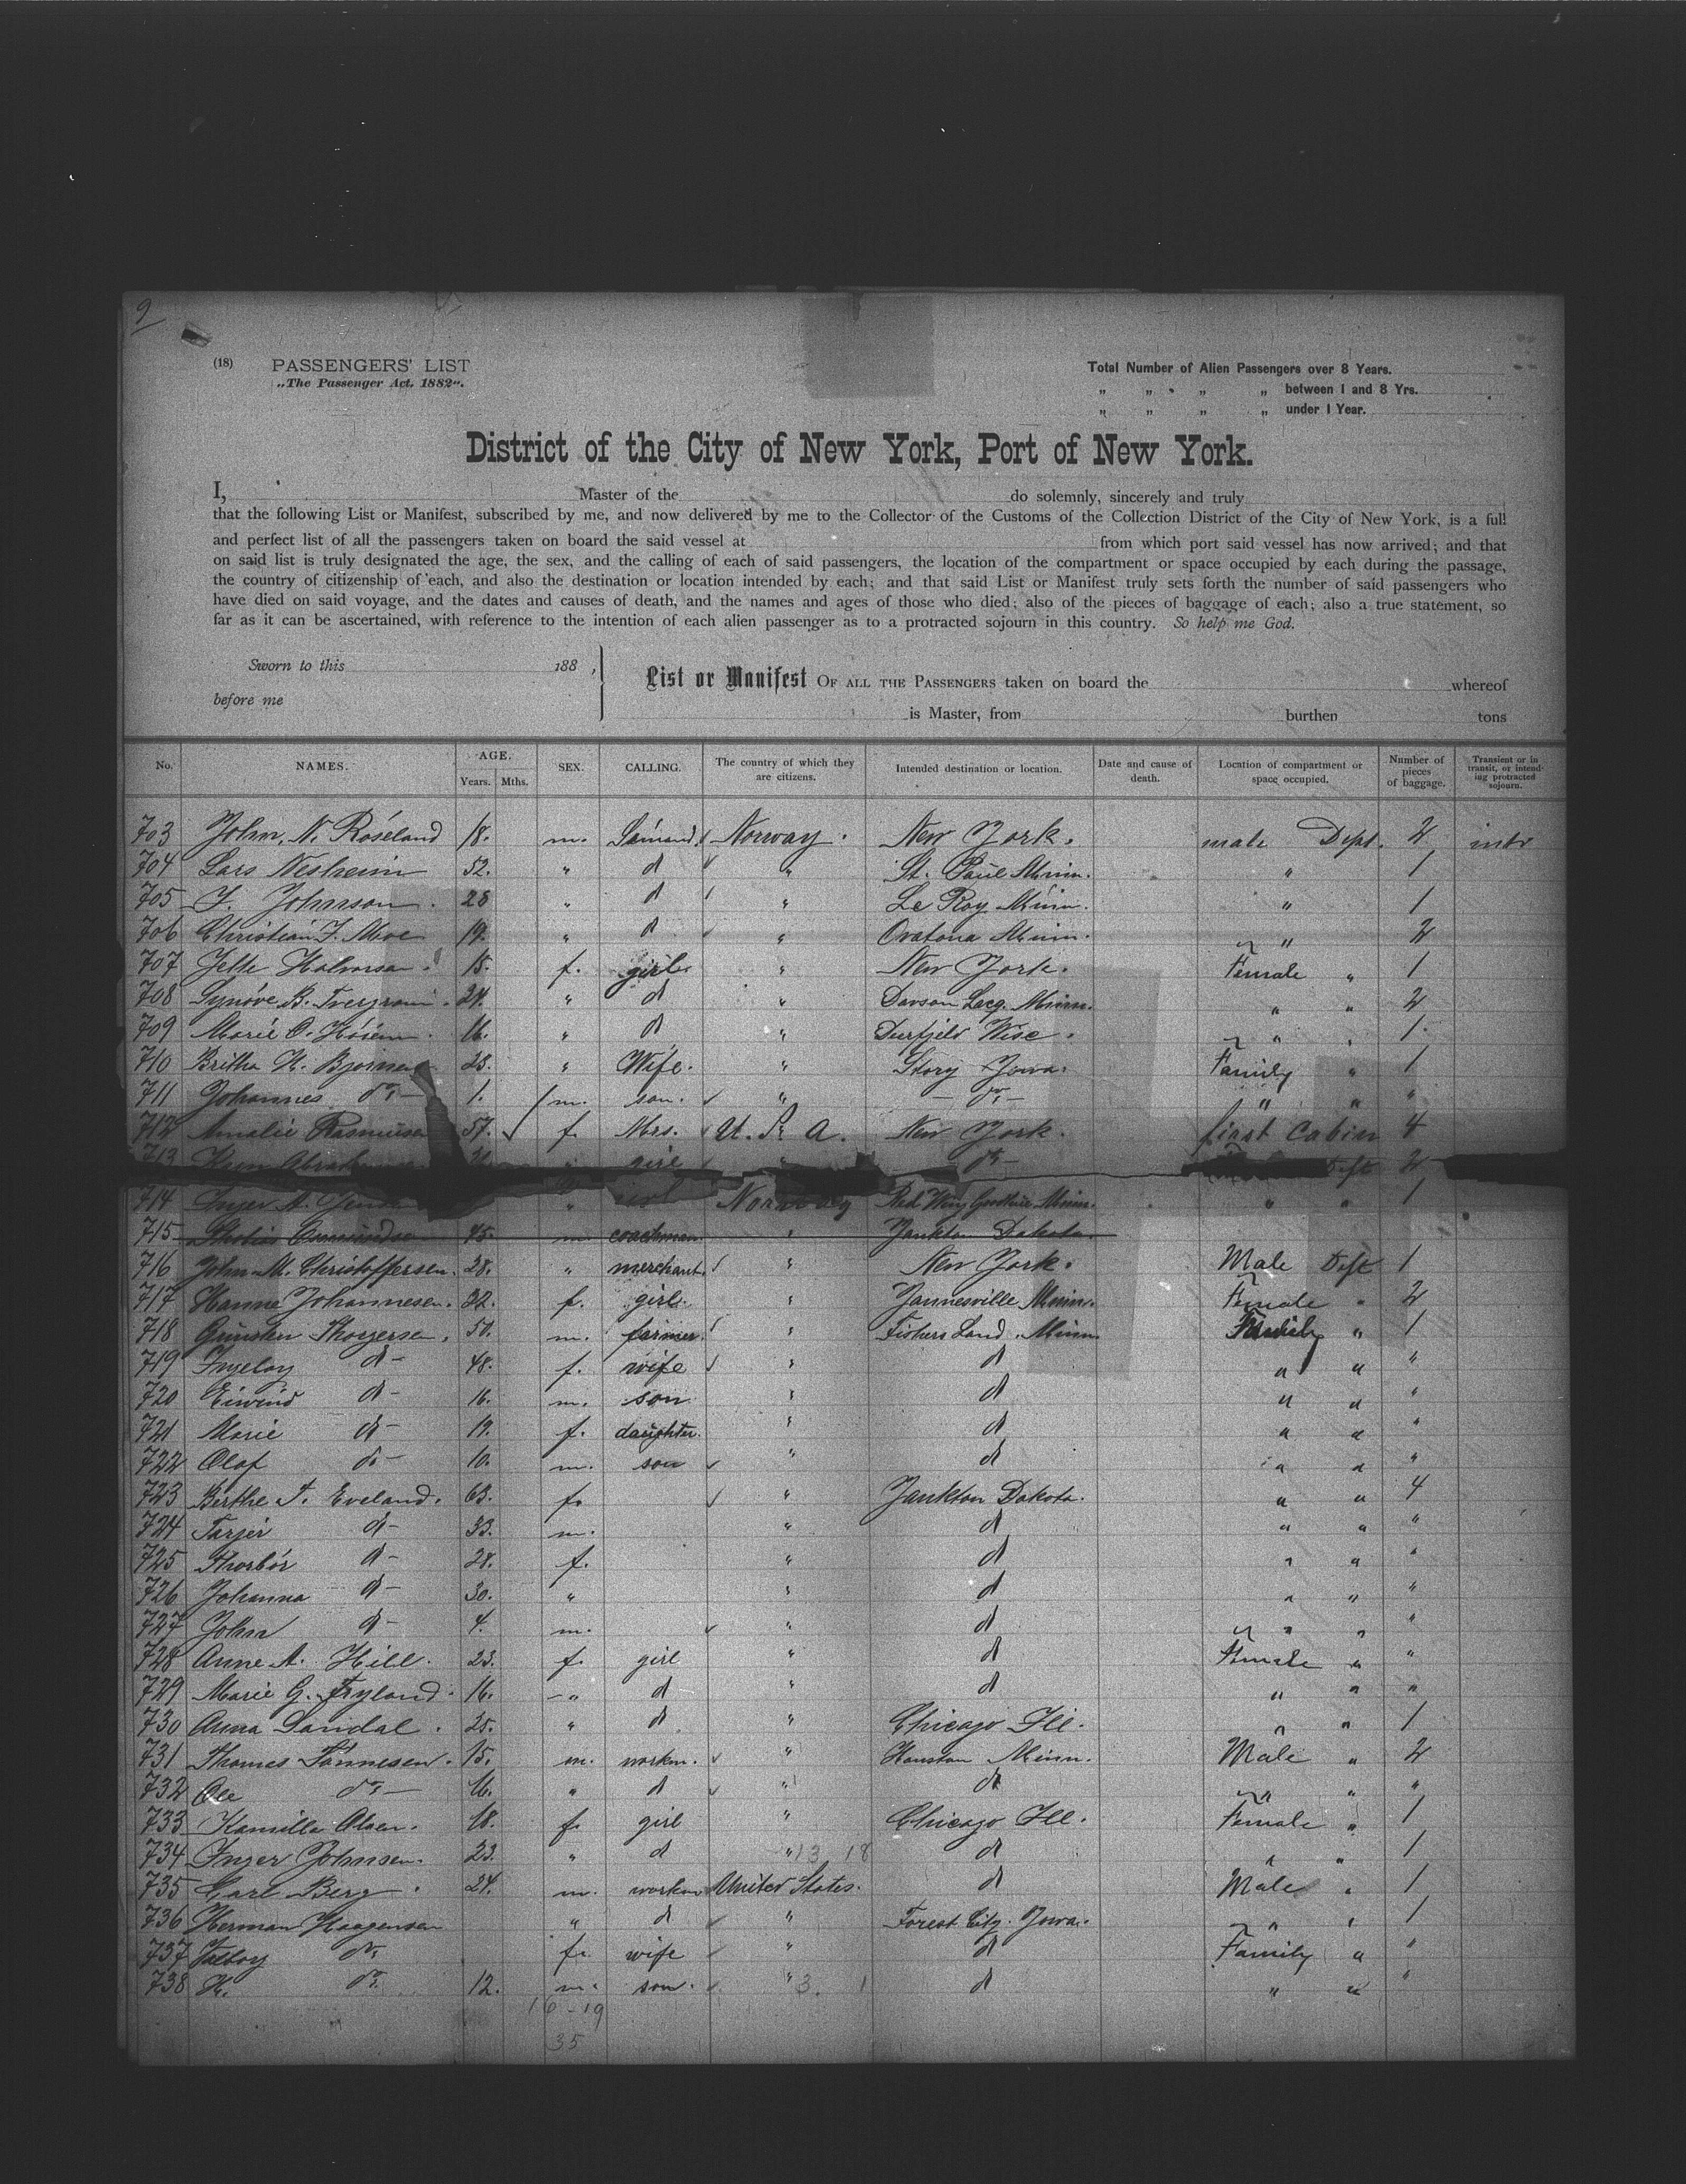 9
(18) PASSENGERS' LIST
„The Passenger Act, 1882“.
Total Number of Alien Passengers over 8 Years.
„ „ „ „ between 1 and 8 Yrs.
„ „ „ „ under 1 Year.
District of the City of New York, Port of New York.
I, Master of the do solemnly, sincerely and truly
that the following List or Manifest, subscribed by me, and now delivered by me to the Collector of the Customs of the Collection District of the City of New York, is a full
and perfect list of all the passengers taken on board the said vessel at from which port said vessel has now arrived; and that
on said list is truly designated the age, the sex, and the calling of each of said passengers, the location of the compartment or space occupied by each during the passage,
the country of citizenship of each, and also the destination or location intended by each; and that said List or Manifest truly sets forth the number of said passengers who
have died on said voyage, and the dates and causes of death, and the names and ages of those who died; also of the pieces of baggage of each; also a true statement, so
far as it can be ascertained, with reference to the intention of each alien passenger as to a protracted sojourn in this country. So help me God.
Sworn to this 188 ,
before me
List or Manifest OF ALL THE PASSENGERS taken on board the whereof
is Master, from burthen tons
No. NAMES. AGE. Years. Mths. SEX. CALLING. The country of which they are citizens. Intended destination or location. Date and cause of death. Location of compartment or space occupied. Number of pieces of baggage. Transient or in transit, or intending protracted sojourn.
703 John. N. Röseland 18. m. Norway. New York. male Dept. 2
704 Lars Nesheim 52. " d " St. Paul Minn. " 1
705 J. Johnson. 28 " d " Le Roy Minn. " 1
706 Christian J. Moe 19. " d " Ovatona Minn. " 2
707 15. f. girl " New York. Female " 1
708 Synöve B. 24. " d " Minn. " " 2
709 Marie O. 16. " d " Wisc. " " 1
710 Britha 28. " Wife. " Story Iowa. Family " 1
711 Johannes do- 1. m. son. " -do- " " "
712 Amalie Rasmusse 57. f. Mrs. U. S. A. New York. first Cabin 4
713 girl do- Dept 2
714 Inger A. " girl Norway Red Wing Goodhue Minn. " " 1
715 45. m. coachman. " Yankton Dakota.
716 John M. Christoffersen. 28. " merchant. " New York. Male Dept 1
717 Hanne Johannesen. 22. f. girl. " Jannesville Minn. Female " 2
718 Thorgersen. 50. m. farmer. " Fishers Land. Minn. Family " 1
719 Ingeborg d- 48. f. wife " d " " "
720 Eivind d- 16. m. son " d " " "
721 Marie d- 19. f. daughter. " d " " "
722 Olaf do- 10. m. son " d " " "
723 Berthe T. Eveland. 63. f. " Yankton Dakota. " " 4
724 Tarjer d- 33. m. " d " " "
725 Thorbör d- 28. f. " d " " "
726 Johanna d- 30. " " d " " "
727 John d- 4. m. " d " " "
728 Anne A. Hill. 23. f. girl " d Female " "
729 Marie G. Fryland. 16. -" d " d " " "
730 Anna Landal. 25. " d " Chicago Ill. " " 1
731 Thomas Tönnesen. 15. m. workm. " Houston Minn. Male " 2
732 Ole do- 16. " d " d " " "
733 Kamilla Olsen. 18. f. girl " Chicago Ill. Female " 1
734 Inger Johnsen. 23. " d " 13 18 d " " 1
735 Carl Berg. 24. m. workm United States. d Male " 1
736 Herman Haagensen " d " Forest City. Iowa. " " 1
737 do, f. wife " d Family " "
738 H. do. 12. m. son. " 3. 1 d " " "
16-19
35